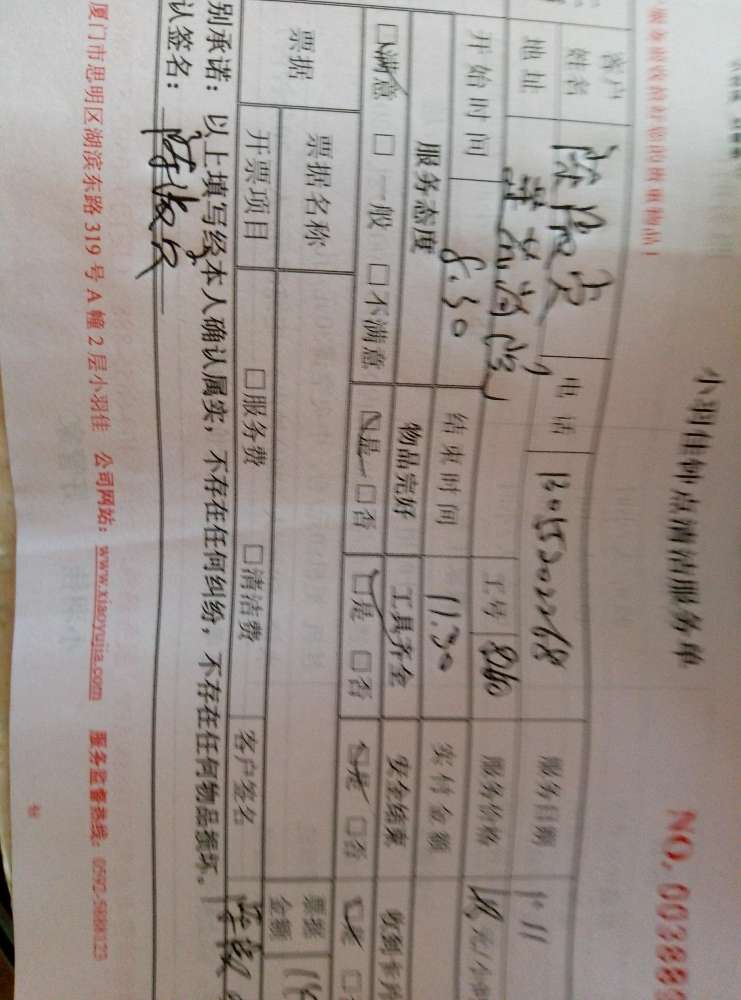 服务前收拾好您的贵重物品！
小羽佳钟点清洁服务单
NO. 003888
客户姓名 电话 服务日期
地址 工号 8260 服务价格 元/小时
开始时间 8:30 结束时间 11:30 实付金额
服务态度 物品完好 工具齐全 安全结束 收到卡片
□满意 □一般 □不满意 □是 □否 □是 □否 □是 □否 □是
票据 票据名称 票据金额
开票项目 □服务费 □清洁费 客户签名
别承诺：以上填写经本人确认属实，不存在任何纠纷，不存在任何物品损坏。
认签名：
厦门市思明区湖滨东路 319 号 A 幢 2 层小羽佳 公司网站：www.xiaoyujia.com 服务监督热线：0592-5888123